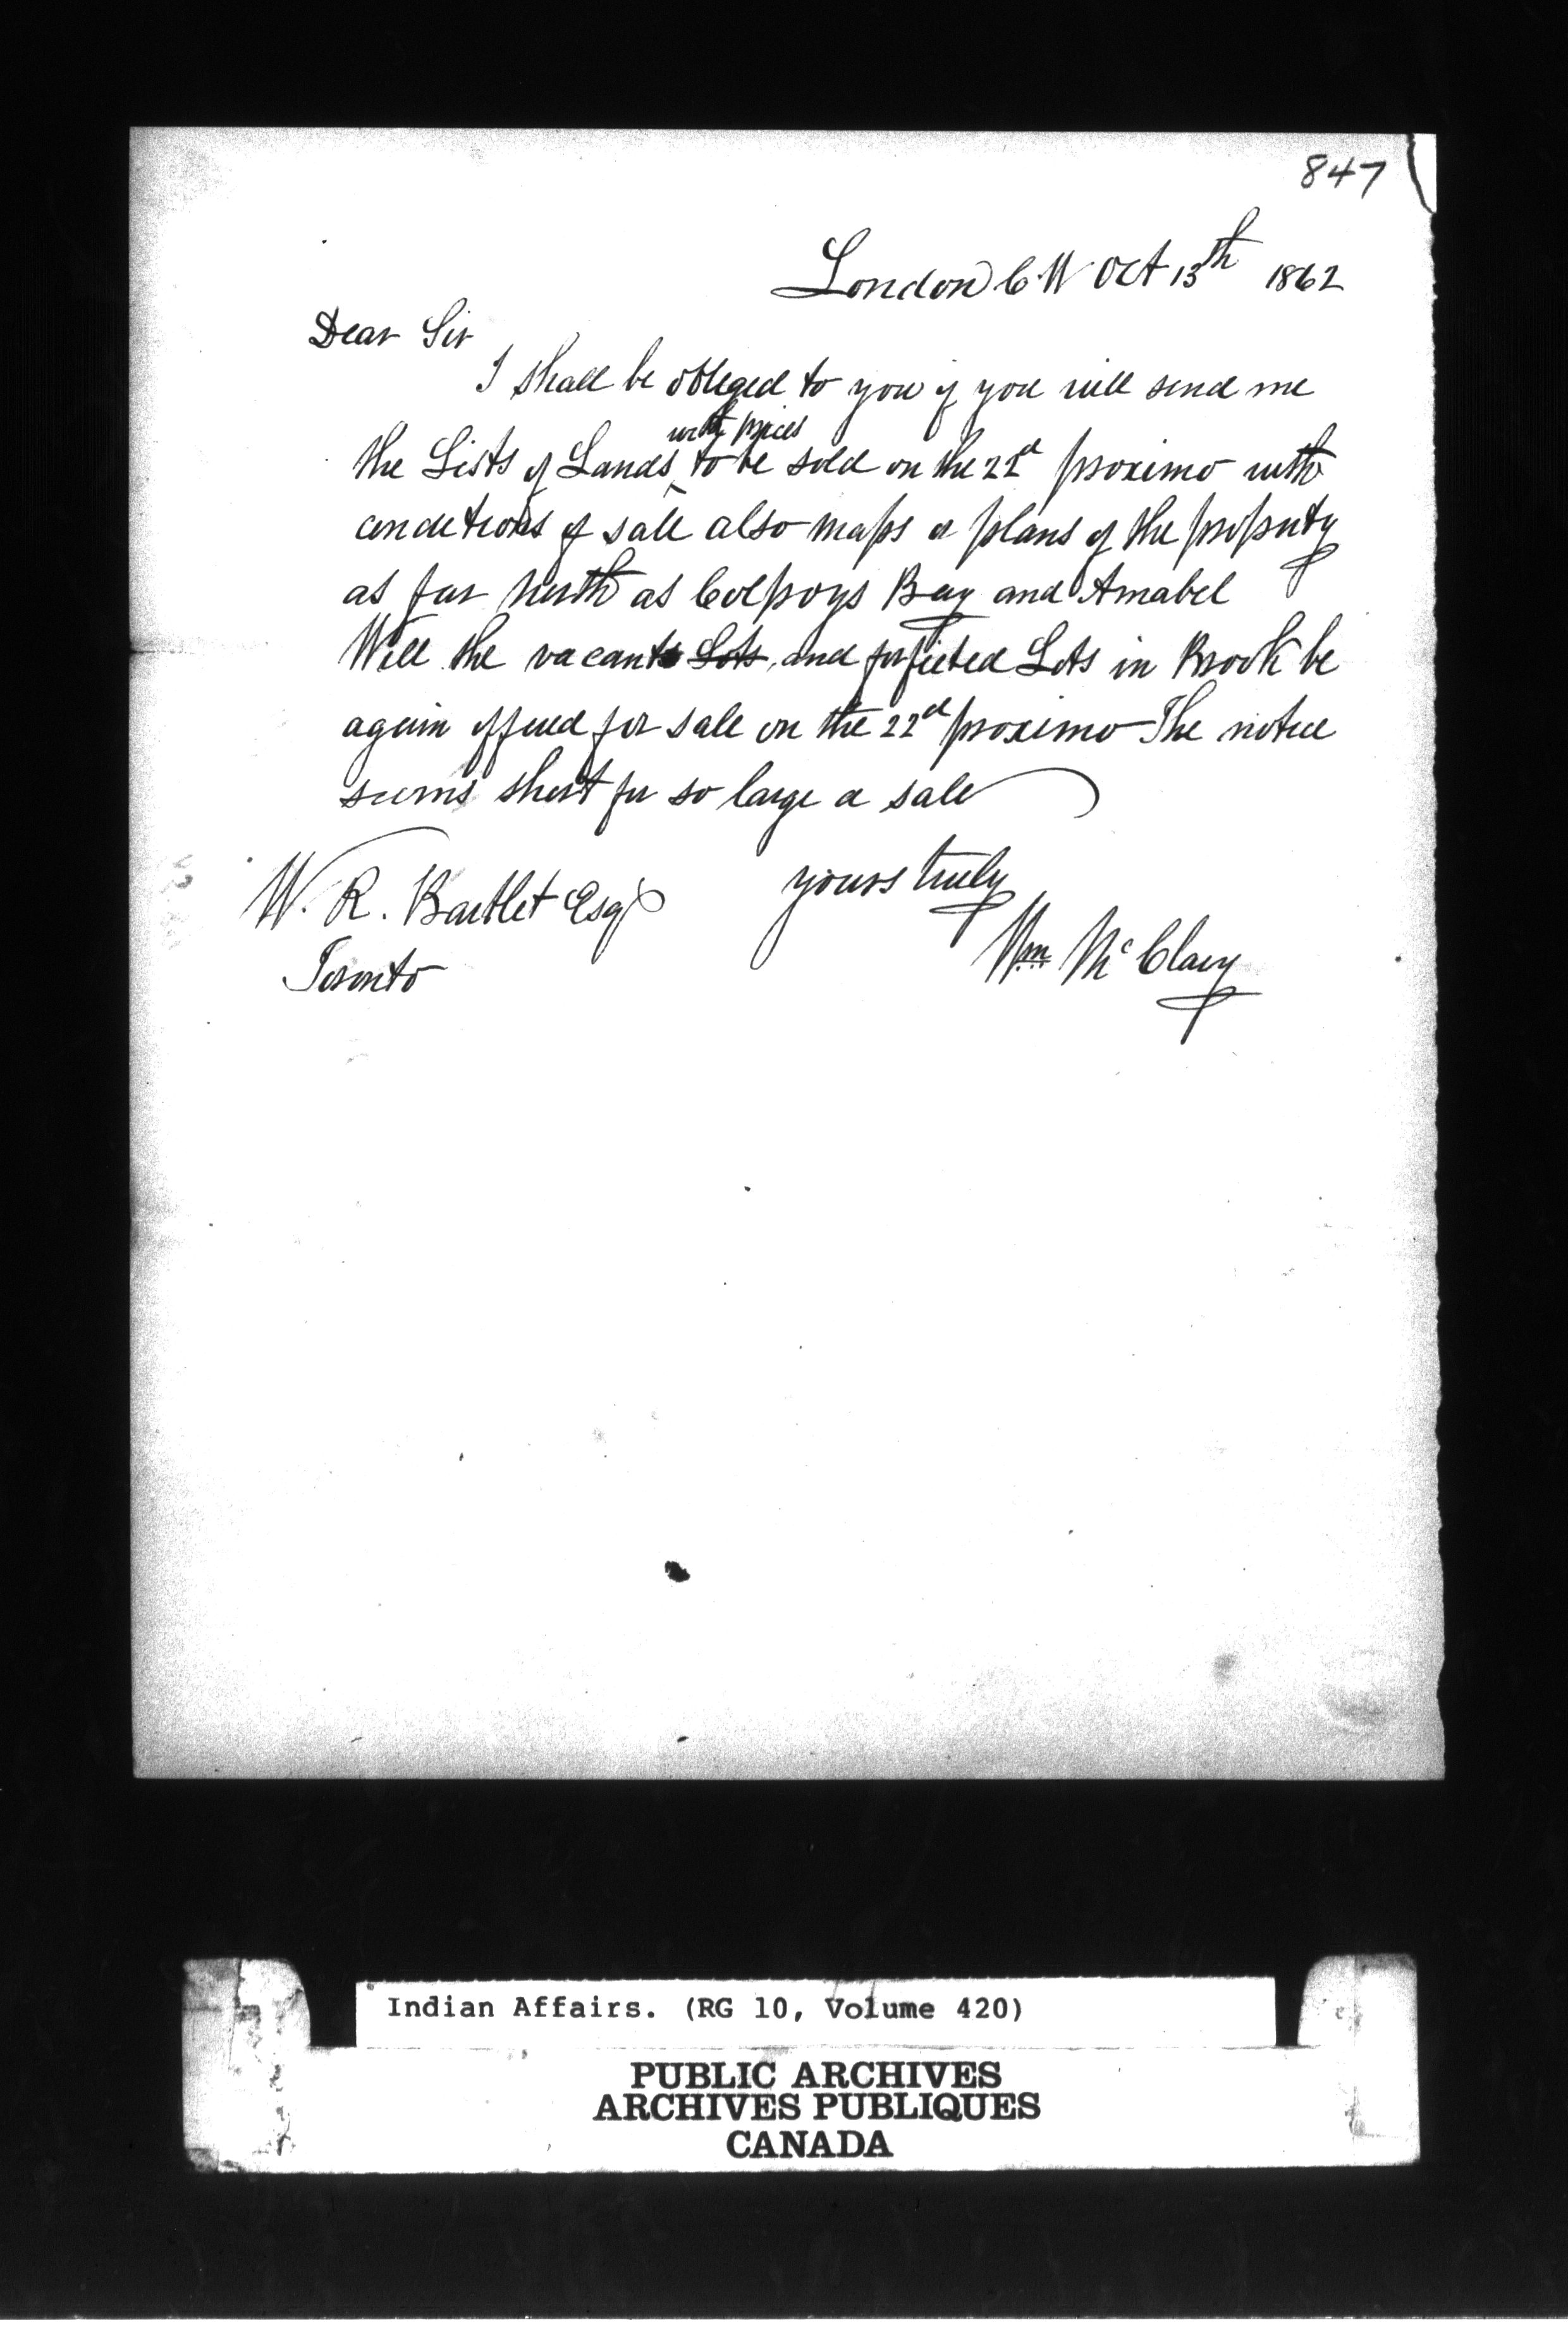 847
London C W Oct 13th 1862
Dear Sir
I shall be obliged to you if you will send me
with prices
the Lists of Lands to be sold on the 22d proximo with
conditions of sale also maps or plans of the property
as far north as Colpoys Bay and Amabel
Will the vacant Lots and forfeited Lots in Brook be
again offered for sale on the 22d proximo The notice
seems short for so large a sale
yours truly
W. R. Bartlet Esq
Wm McClary
Toronto
Indian Affairs. (RG 10, Volume 420)
PUBLIC ARCHIVES
ARCHIVES PUBLIQUES
CANADA